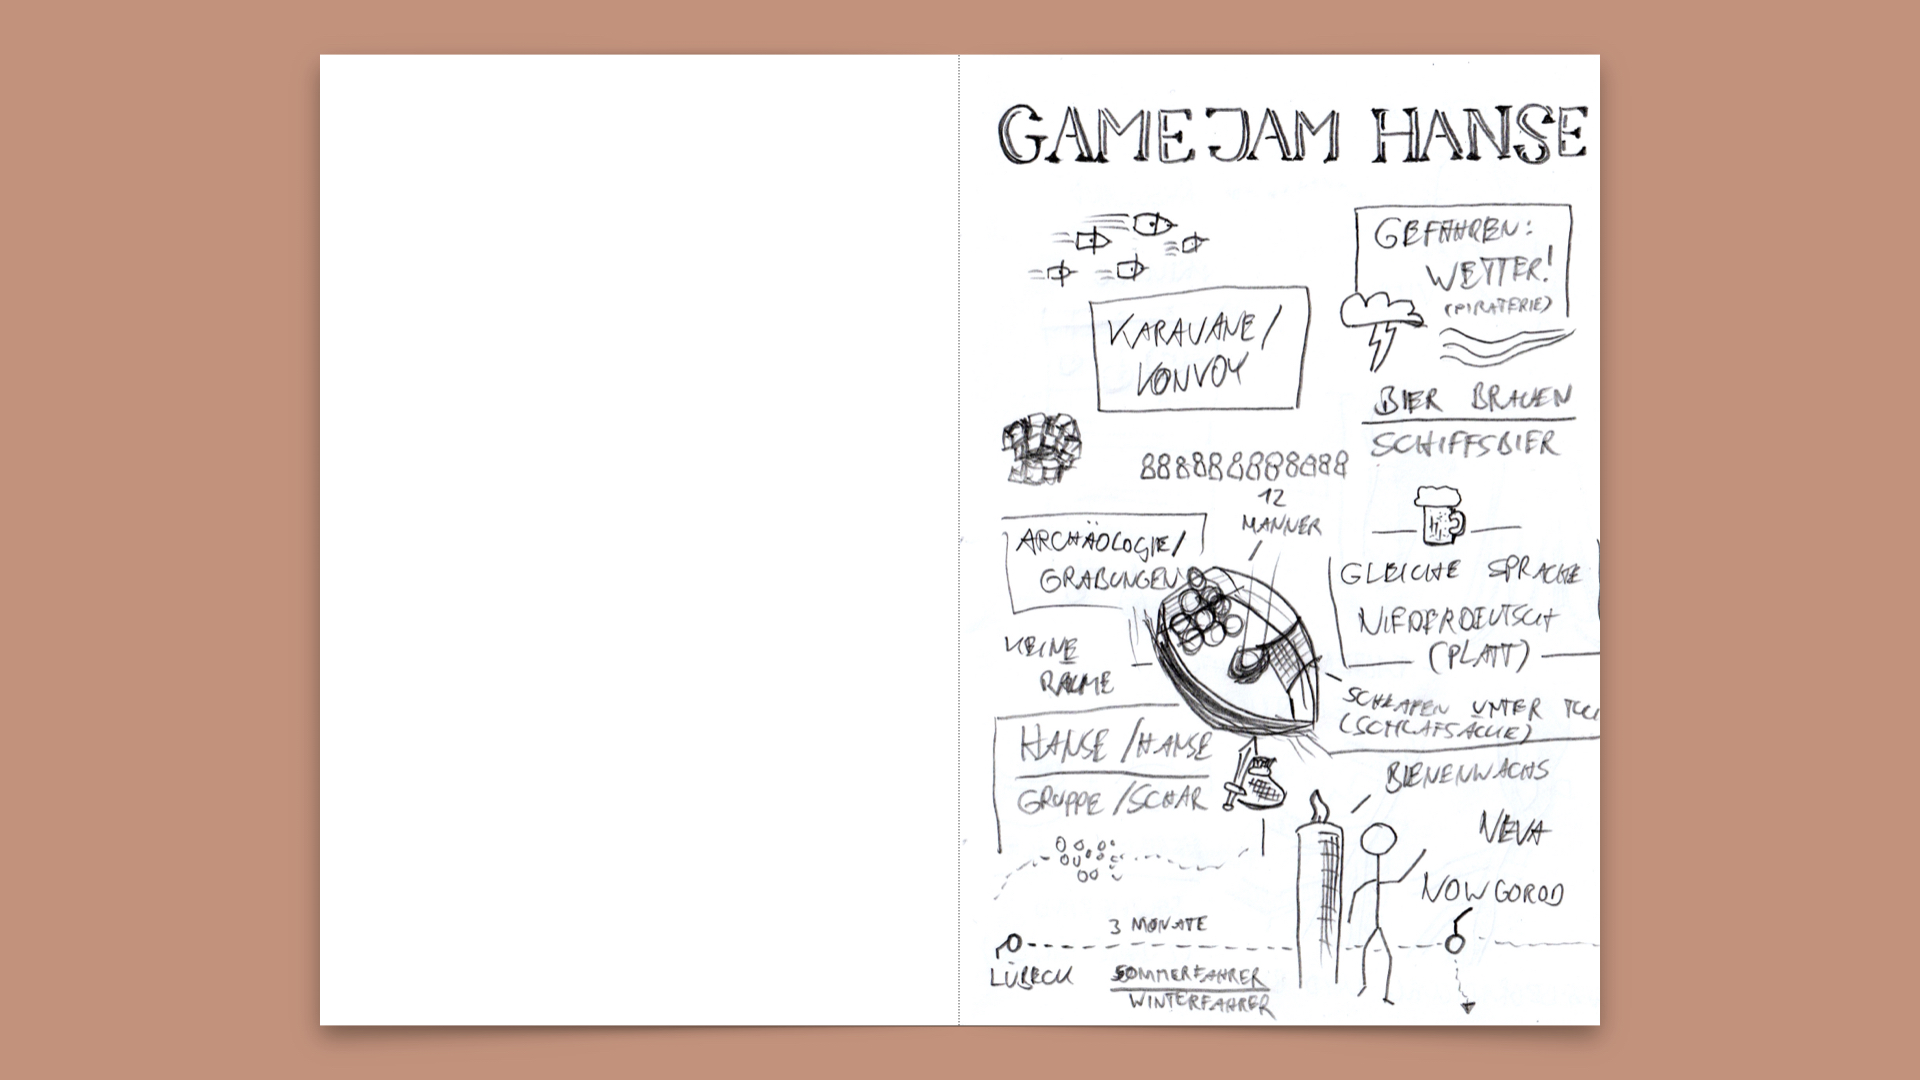 GAMEJAM HANSE
GEFAHREN:
WETTER!
(PIRATERIE)
KARAVANE/
KONVOY
BIER BRAUEN
SCHIFFSBIER
12
MÄNNER
ARCHÄOLOGIE/
GRABUNGEN
GLEICHE SPRACHE
NIEDERDEUTSCH
(PLATT)
KEINE
RÄUME
SCHLAFEN UNTER
(SCHLAFSÄCKE)
HANSE/HANSE
GRUPPE/SCHAR
BIENENWACHS
NEVA
NOWGOROD
3 MONATE
LÜBECK
SOMMERFAHRER
WINTERFAHRER